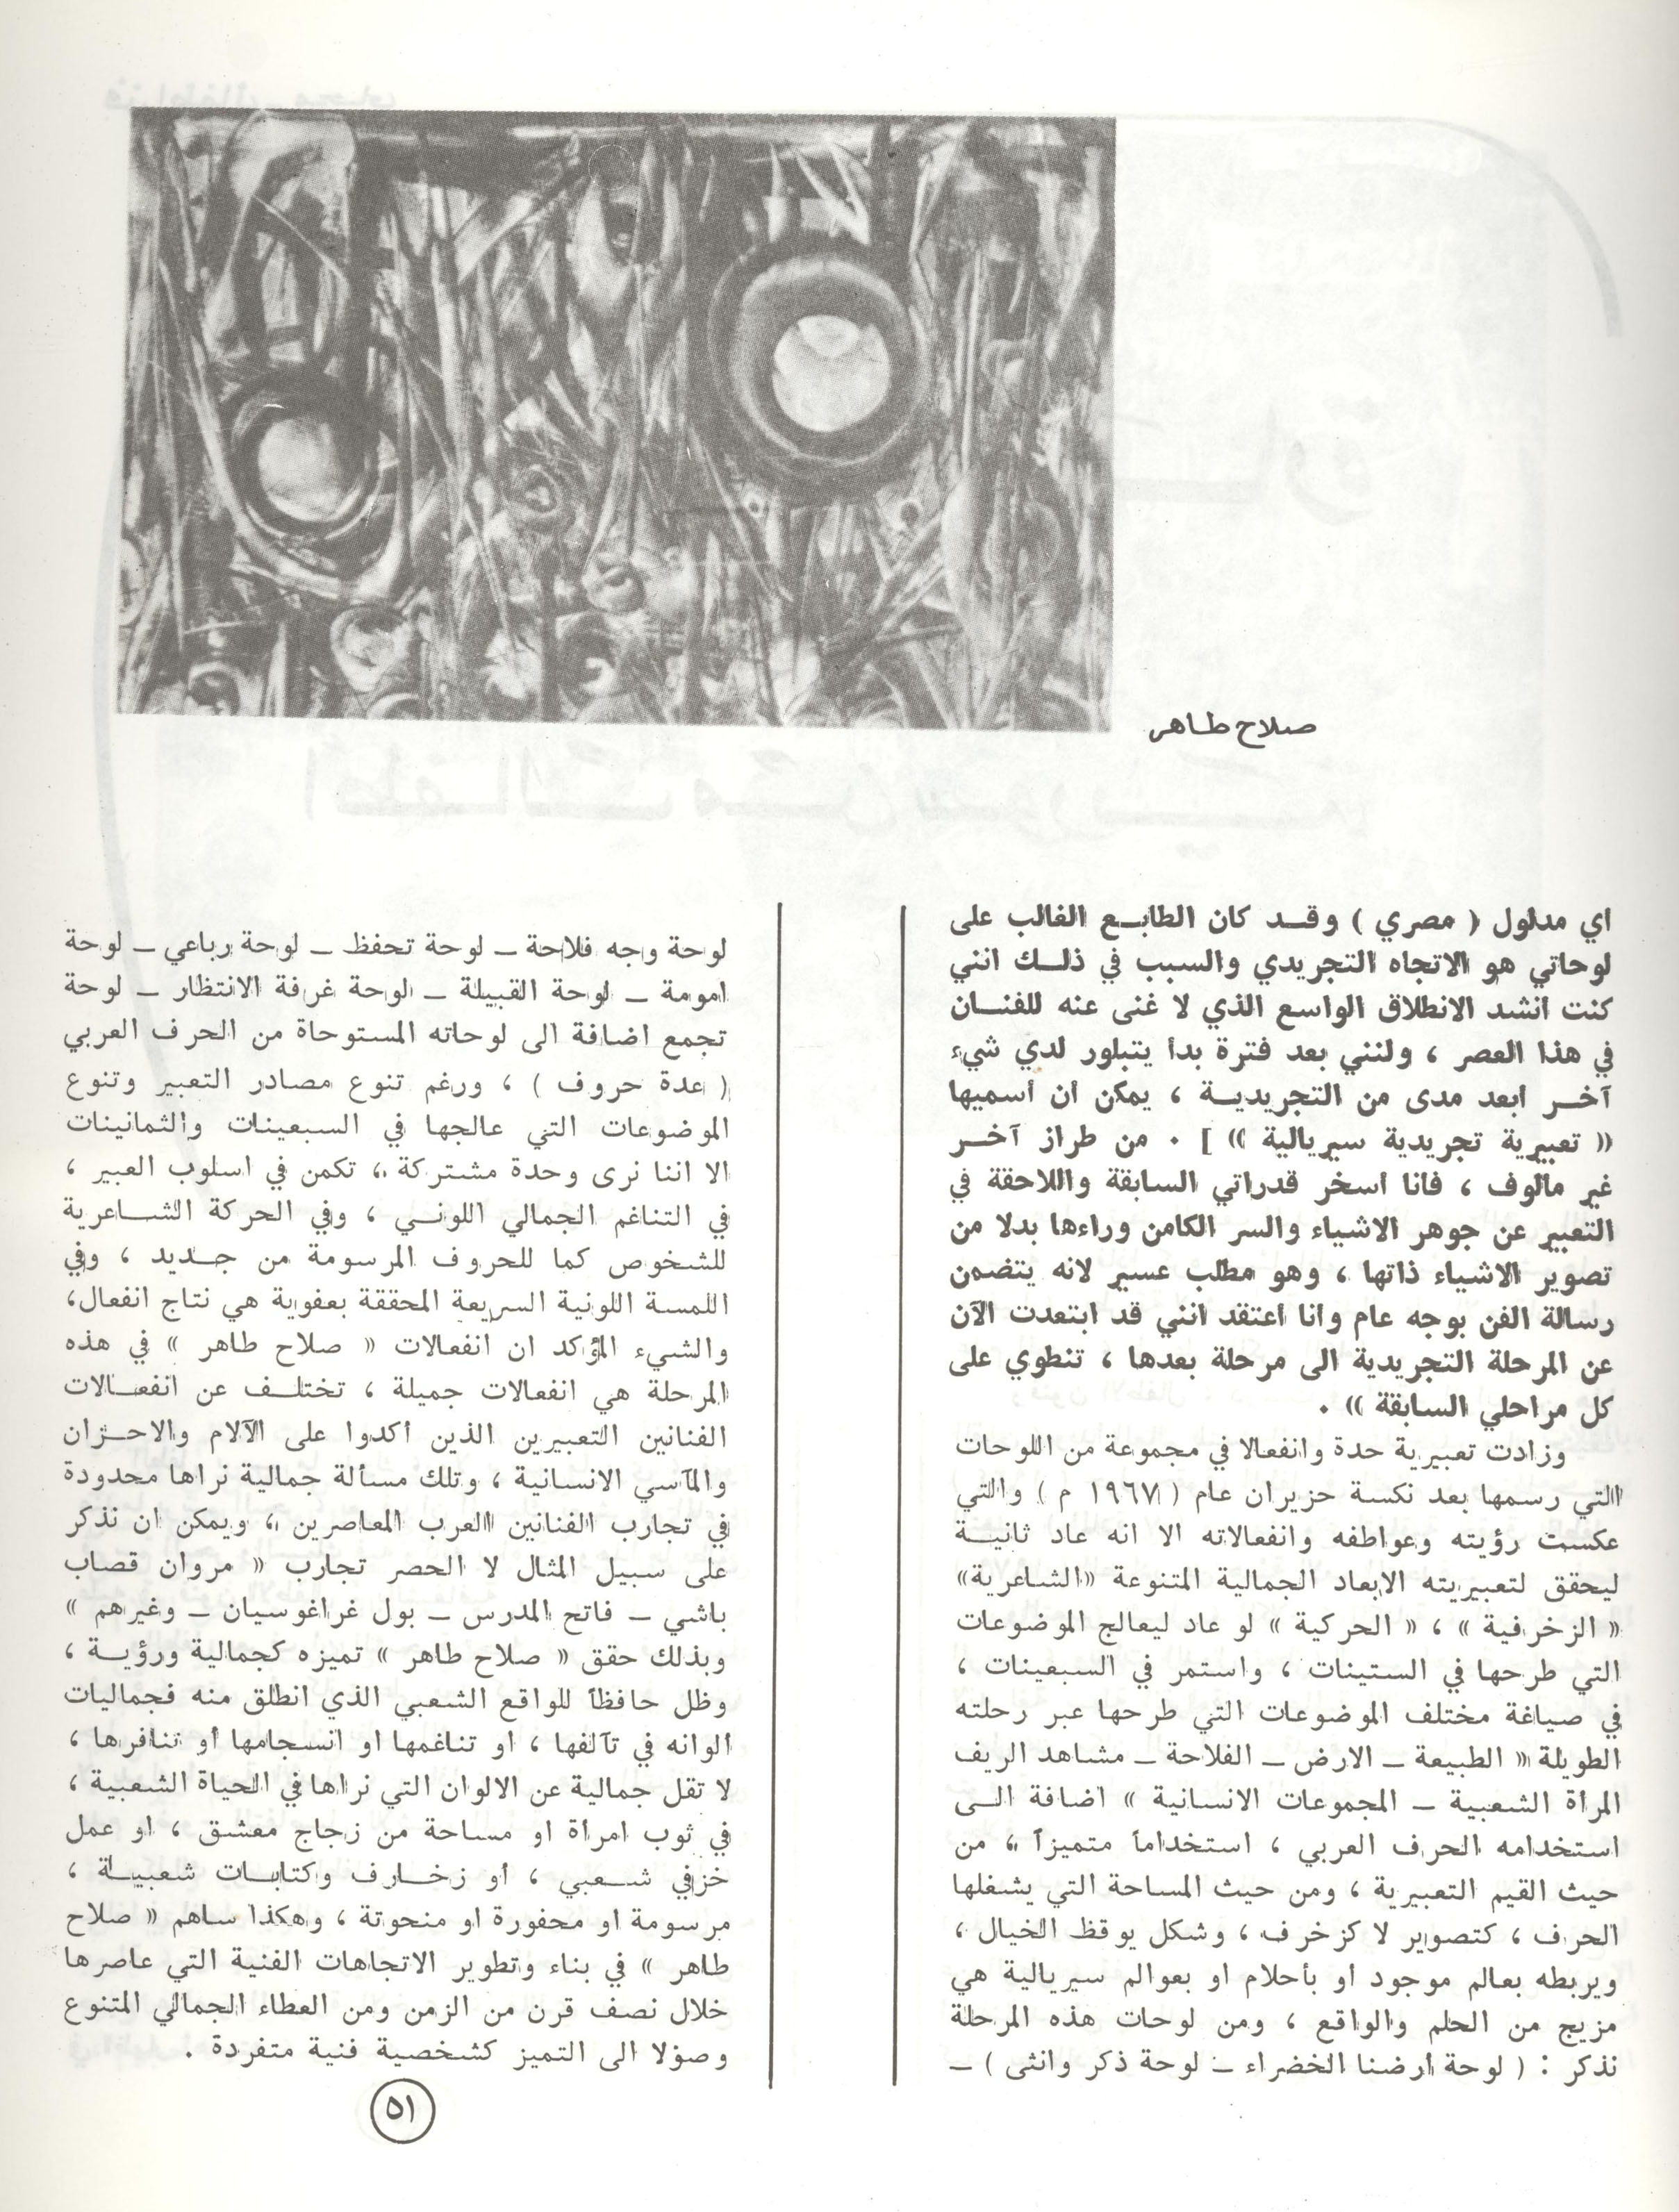 صلاح طاهر
اي مدلول ( مصري ) وقد كان الطابع الغالب على
لوحاتي هو الاتجاه التجريدي والسبب في ذلك انني
كنت انشد الانطلاق الواسع الذي لا غنى عنه للفنان
في هذا العصر ، ولنني بعد فترة بدأ يتبلور لدي شيء
آخر ابعد مدى من التجريدية ، يمكن أن أسميها
« تعبيرية تجريدية سيريالية » ] . من طراز آخر
غير مألوف ، فأنا أسخر قدراتي السابقة واللاحقة في
التعبير عن جوهر الاشياء والسر الكامن وراءها بدلا من
تصوير الاشياء ذاتها ، وهو مطلب عسير لانه يتضمن
رسالة الفن بوجه عام وانا اعتقد انني قد ابتعدت الآن
عن المرحلة التجريدية الى مرحلة بعدها ، تنطوي على
كل مراحلي السابقة » .
وزادت تعبيرية حدة وانفعالا في مجموعة من اللوحات
التي رسمها بعد نكسة حزيران عام ( ١٩٦٧ م ) والتي
عكست رؤيته وعواطفه وانفعالاته الا انه عاد ثانية
ليحقق لتعبيريته الابعاد الجمالية المتنوعة «الشاعرية»
« الزخرفية » ، « الحركية » لو عاد ليعالج الموضوعات
التي طرحها في الستينات ، واستمر في السبعينات ،
في صياغة مختلف الموضوعات التي طرحها عبر رحلته
الطويلة « الطبيعة ــ الارض ــ الفلاحة ــ مشاهد الريف
المرأة الشعبية ــ المجموعات الانسانية » اضافة الى
استخدامه الحرف العربي ، استخداماً متميزاً ، من
حيث القيم التعبيرية ، ومن حيث المساحة التي يشغلها
الحرف ، كتصوير لا كزخرف ، وشكل يوقظ الخيال ،
ويربطه بعالم موجود او بأحلام او بعوالم سيريالية هي
مزيج من الحلم والواقع ، ومن لوحات هذه المرحلة
نذكر : ( لوحة أرضنا الخضراء ــ لوحة ذكر وانثى ) ــ
لوحة وجه فلاحة ــ لوحة تحفظ ــ لوحة رباعي ــ لوحة
امومة ــ لوحة القبيلة ــ لوحة غرفة الانتظار ــ لوحة
تجمع اضافة الى لوحاته المستوحاة من الحرف العربي
( عدة حروف ) ، ورغم تنوع مصادر التعبير وتنوع
الموضوعات التي عالجها في السبعينات والثمانينات
الا اننا نرى وحدة مشتركة ، تكمن في اسلوب العبير ،
في التناغم الجمالي اللوني ، وفي الحركة الشاعرية
للشخوص كما للحروف المرسومة من جديد ، وفي
اللمسة اللونية السريعة المحققة بعفوية هي نتاج انفعال،
والشيء المؤكد ان انفعالات « صلاح طاهر » في هذه
المرحلة هي انفعالات جميلة ، تختلف عن انفعالات
الفنانين التعبيرين الذين أكدوا على الآلام والاحزان
والمآسي الانسانية ، وتلك مسألة جمالية نراها محدودة
في تجارب الفنانين العرب المعاصرين ، ويمكن ان نذكر
على سبيل المثال لا الحصر تجارب « مروان قصاب
باشي ــ فاتح المدرس ــ بول غراغوسيان ــ وغيرهم »
وبذلك حقق « صلاح طاهر » تميزه كجمالية ورؤية ،
وظل حافظاً للواقع الشعبي الذي انطلق منه فجماليات
الوانه في تآلفها ، او تناغمها او انسجامها أو تنافرها ،
لا تقل جمالية عن الالوان التي نراها في الحياة الشعبية ،
في ثوب امرأة او مساحة من زجاج معشق ، او عمل
خزفي شعبي ، أو زخارف وكتابات شعبية ،
مرسومة او محفورة او منحوتة ، وهكذا ساهم « صلاح
طاهر » في بناء وتطوير الاتجاهات الفنية التي عاصرها
خلال نصف قرن من الزمن ومن العطاء الجمالي المتنوع
وصؤلا الى التميز كشخصية فنية متفردة .
٥١